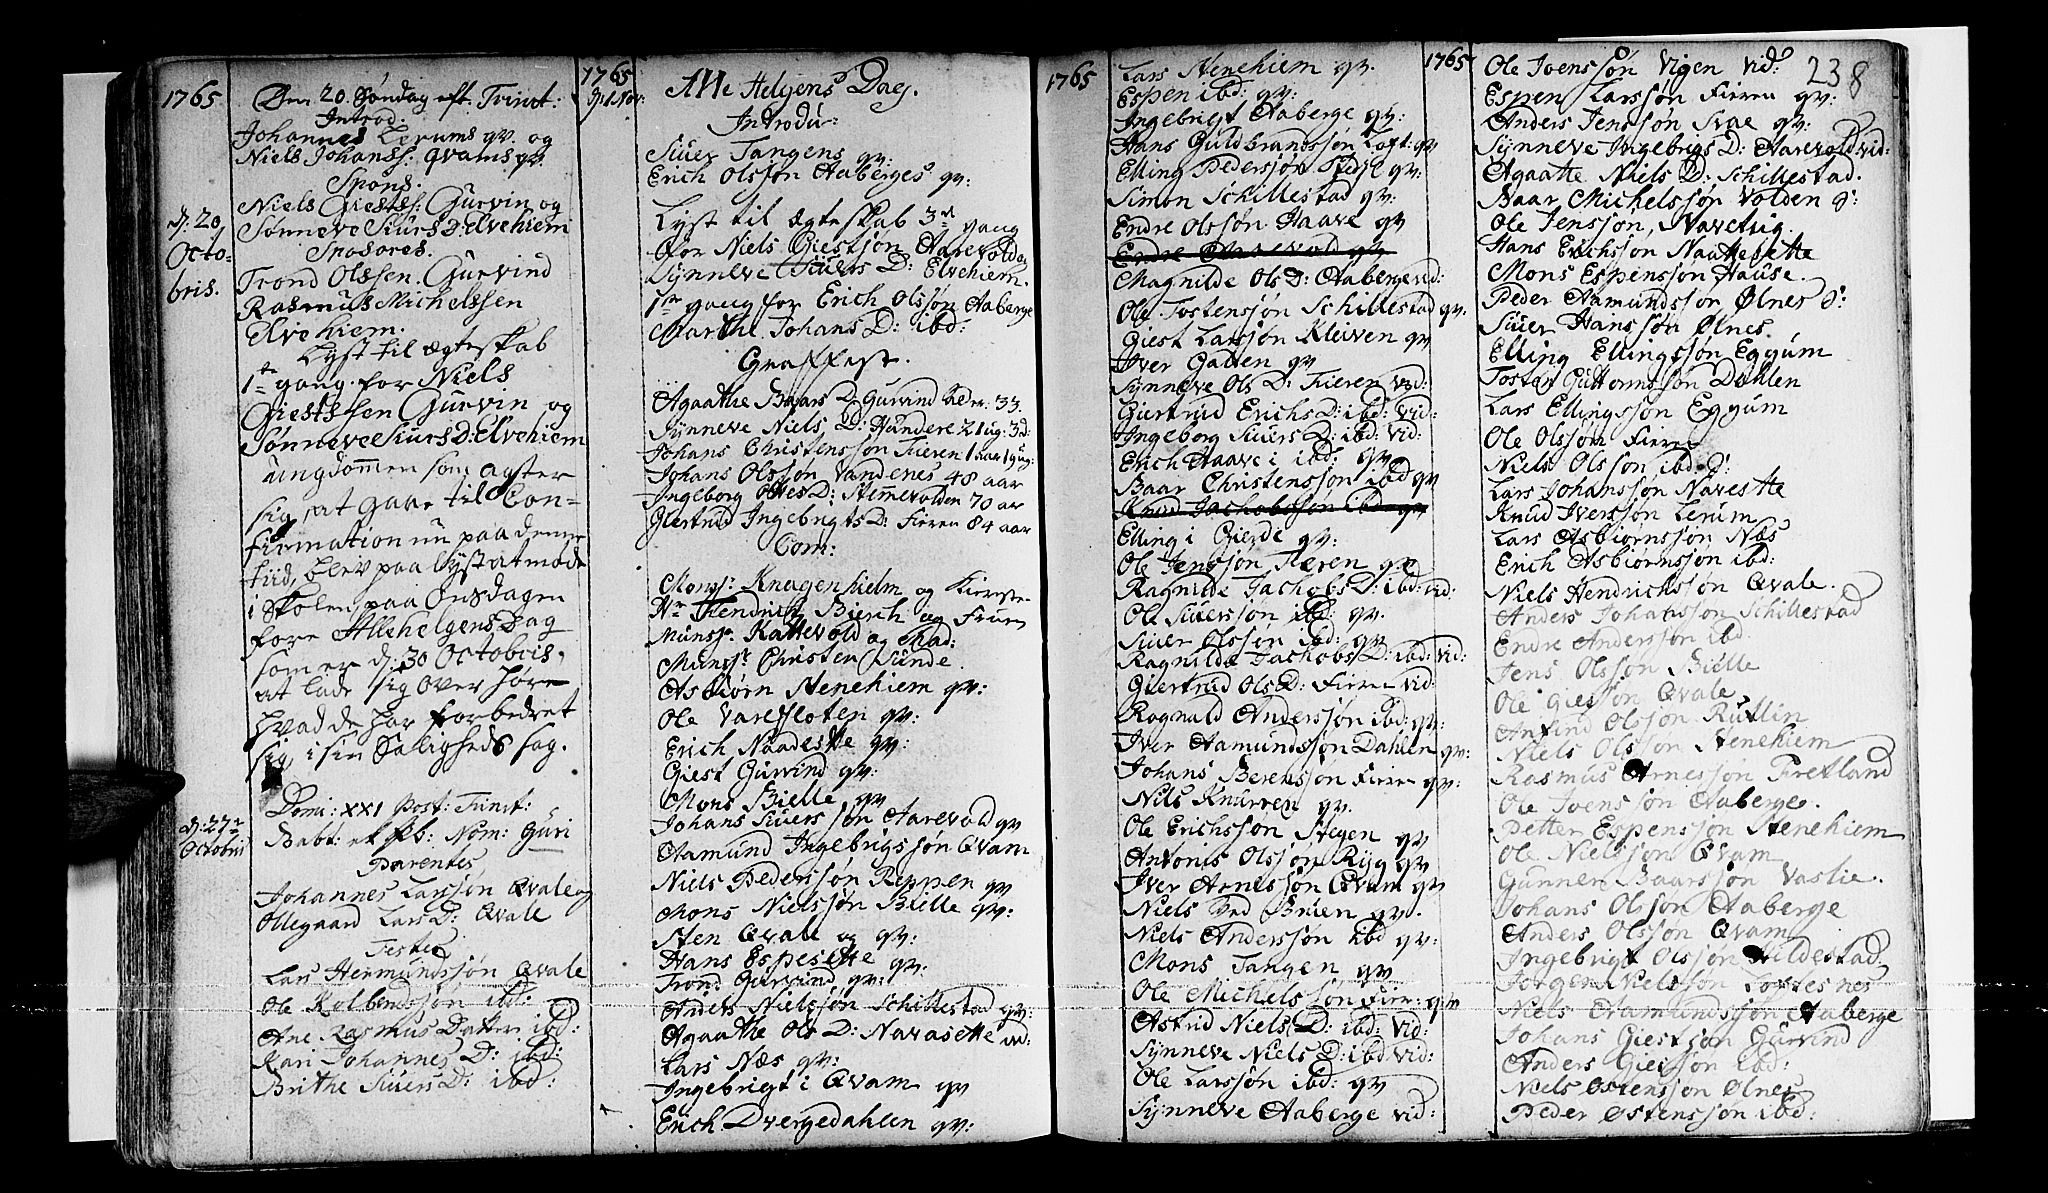 1765
Dom 20. Søndag eft. Trinit:
Introd:
Johannes Lerums qv. og
Niels Johanss: Qvams qv
Spons.
Niels Giests: Gurvin og
Sønneve Siurs D: Elvehiem
Sposores.
d: 20
Octo-
bris.
Trond Olssen Gurvind
Rasmus Michelssen
Elvehiem.
Lyst til ægteskab
1te gang for Niels
Giestssen Gurvin og
Sønneve Siurs D: Elvehiem
ungdommen som agter
sig at gaae til Con-
firmation nu paa denne
tiid, blev paa lyst at møde
i Skolen paa Onsdagen
føre Allehelgens Dag
som er d: 30 Octobris,
at lade sig over høre
hvad de har forbedret
sig i sin Saligheds sag.
d: 27de
Octobris
Domi: XXI Post: Trinit:
Babt: et Ps: Nom: Guri
Parentes
Johannes Larssøn Qvale og
Ollegaard Lars D: Qvale
Testes
Lars Hermundssøn Qvale
Ole Kolbenssøn ibd:
Ane Rasmus Datter ibd:
Kari Johannes D: ibd:
Brithe Siuers D: ibd:
1765
d: 1 Nov:
Alle Helgens Dag.
Introdu:
Siuer Tangens qv:
Erich Olssøn Aaberges qv:
Lyst til ægteskab 3d gang
for Niels Giestsøn Aarevold og
Synneve Siuers D: Elvehiem.
1te gang for Erich Olssøn Aaberge
Marthe Johans D: ibd:
Graffæst.
Agaathe Baars D Gurvind Alder: 33
Synneve Niels D: Hundere 21 ug: 3 d:
Johans Christenssøn Fieren 1 aar 19 ug:
Johans Olssøn Vandenes 48 aar
Ingeborg Oles D: Stemevolden 70 ar
Giertrud Ingebrigts D: Fieren 84 aar
Com:
Monsr: Knagenhielm og Kierste
Hr Hendrich Bierch og Frue
Munsr. Kattevold og Mad:
Munsr. Christen Sunde.
Asbiørn Stenehiem qv:
Ole Varesloten qv:
Erich Naadestte qv:
Giest Gurvind qv:
Mons Bielle qv
Johans Siuers søn Aarevold qv
Aamund Ingebrigssøn Qvam
Niels Pederssøn Reppen qv
Mons Nielssøn Bielle qv:
Sten Qvale og qv:
Hans Espesette qv:
Trond Gurvind qv:
Anders Nielssøn Schillestad qv:
Agaathe Ols D: Navasette vid:
Lars Næs qv:
Ingebrigt i Qvam qv
Erich Dvergedahlen qv:
1765
Lars Stenehiem qv.
Espen ibd: qv:
Ingebrigt Aaberge qv:
Hans Guldbrandssøn Loft: qv
Elling Pederssøn Stedje qv:
Simon Schillestad qv:
Endre Olssøn Haave qv
Endre Aarevold qv
Magnilde Ols D: Aaberge vid:
Ole Tostenssøn Schillestad qv.
Giest Larssøn Kleiven qv
Iver Galten qv
Synneve Ols D: Fieren vid:
Giertrud Erichs D: ibd: vid:
Ingeborg Siuers D: ibd: vid:
Erich Haave i ibd: qv
Baar Christenssøn ibd qv
Knud Jachobssøn ibd qv
Elling i Gierde qv:
Ole Jenssøn Fieren qv
Ragnilde Jachobs D: ibd: vid:
Ole Siuerssøn ibd: qv.
Siuer Olssøn ibd: qv
Ragnilde Jachobs D: ibd: vid:
Giertrud Ols D: Fieren vid:
Rognald Anderssøn ibd: qv:
Iver Aamundssøn Dahlen qv:
Johans Berenssøn Fieren qv:
Nils Knurren qv.
Ole Erichssøn Stegen qv
Antonis Olssøn Ryg qv
Iver Arnessøn Qvam qv
Niels Ved Bruen qv.
Niels Anderssøn ibd qv:
Mons Tangen qv
Ole Michelssøn Fier: qv
Astrid Niels D: ibd: vid:
Synneve Niels D: ibd vid:
Ole Larssøn ibd: qv
Synneve Aaberge vid:
1765
238
Ole Joenssøn Vigen vid:
Espen Larssøn Fieren qv:
Anders Jenssøn Svae qv:
Synneve Ingebrigs D: Aarevold vid:
Agaatte Niels D: Schillestad.
Baar Michelssøn Volden
Ole Jenssøn,
Hans Erichssøn Naattesette
Mons Espenssøn Hause.
Peder Aamundssøn Ølnes
Siuer Hanssøn Ølnes.
Elling Ellingssøn Eggum
Tosten Guttormssøn Dahlen
Lars Ellingssøn Eggum
Ole Olssøn Fieren
Niels Olssøn ibd.
Lars Johanssøn Navestte
Knud Iverssøn Lerum
Lars Asbiørnssøn Næs
Erich Asbiørnssøn ibd:
Niels Hendrichssøn Qvale.
Anders Johanssøn Schillestad
Endre Anderssøn ibd.
Jens Olssøn Bielle
Ole Giessøn Qvale
Anfind Olssøn Rutlin
Niels Olssøn Stenehiem
Rasmus Arnessøn Fretland
Ole Joenssøn Aaberge.
Petter Espenssøn Stenehiem
Ole Nielssøn Qvam
Gunner Baarssøn Vaslie.
Johans Olssøn Aaberge
Anders Olssøn Qvam
Ingebrigt Olssøn Hildestad.
Jørgen Nielssøn Loftesnes
Niels Aamundssøn Aaberge
Johans Giestsøn Gurvind
Anders Giessøn ibd:
Niels Østenssøn Ølnes
Peder Østenssøn ibd: